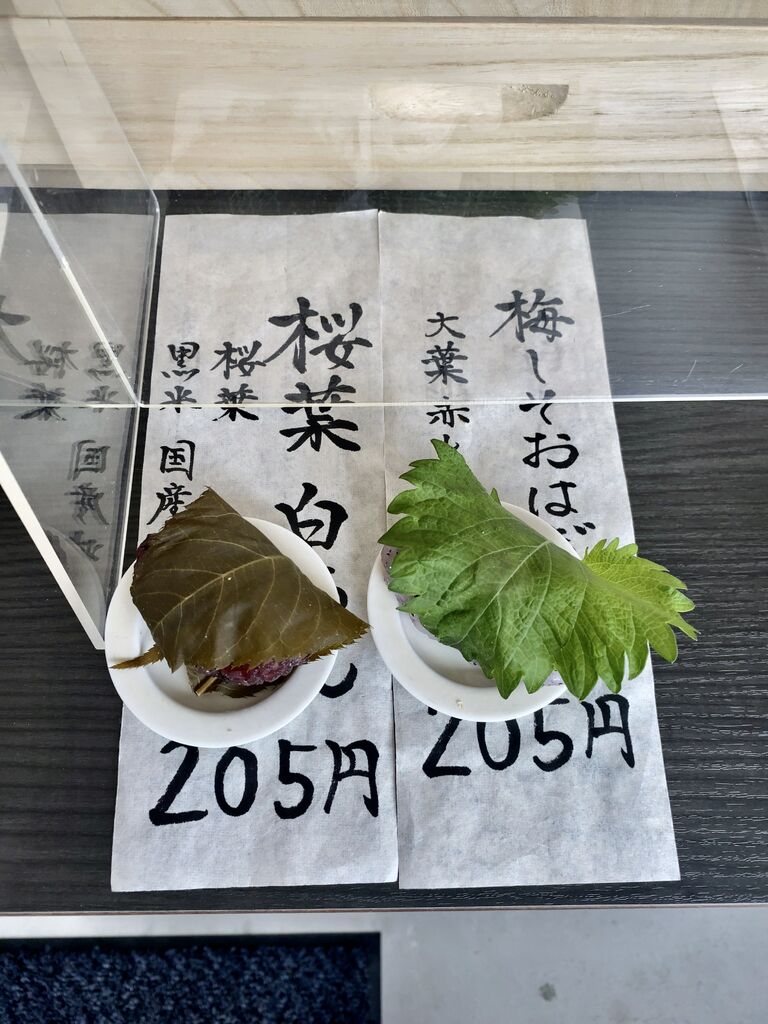 梅しそおは
大葉 赤
205円
桜葉 白
桜葉
黒米 国産
205円